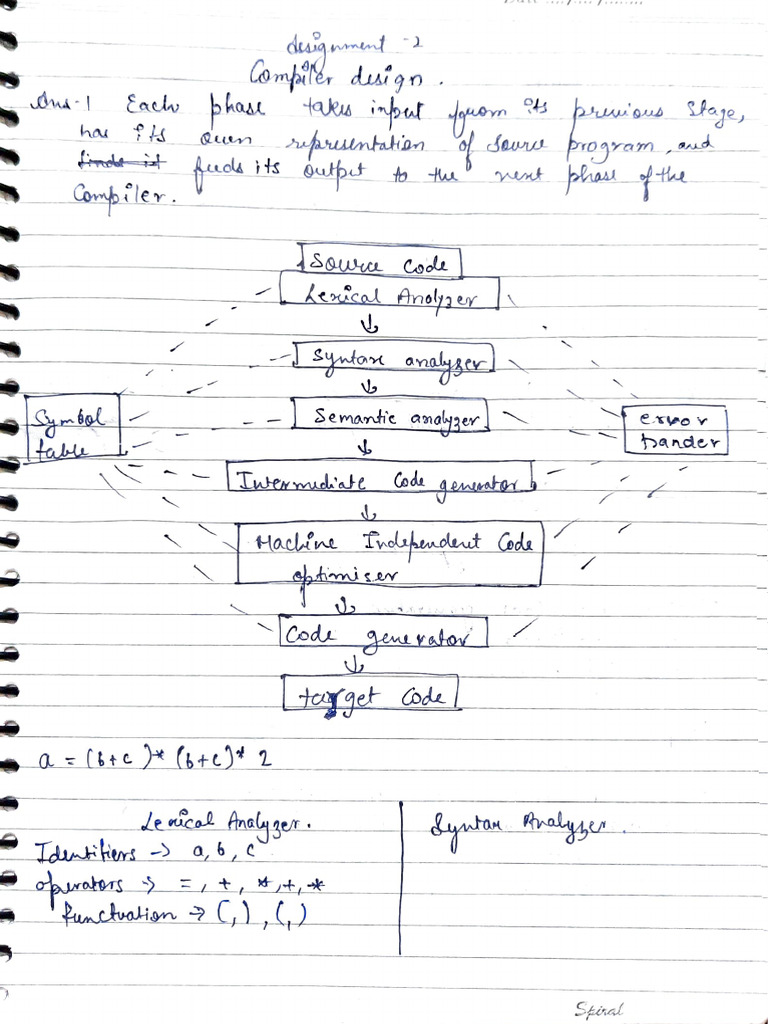 Date ..../..../........
Assignment -2
Compiler design.
Ans-1 Each phase takes input from its previous stage,
has its own representation of source program, and
finds it feeds its output to the next phase of the
Compiler.
Source Code
Lexical Analyzer
↓
Syntax analyzer
↓
Symbol
table
Semantic analyzer
error
hander
↓
Intermediate Code generator
↓
Machine Independent Code
optimiser
↓
Code generator
↓
target Code
a = (b+c)* (b+c)* 2
Lexical Analyzer.
Syntax Analyzer.
Identifiers → a, b, c
operators → =, +, *, +, *
Punctuation → (,) , (,)
Spiral